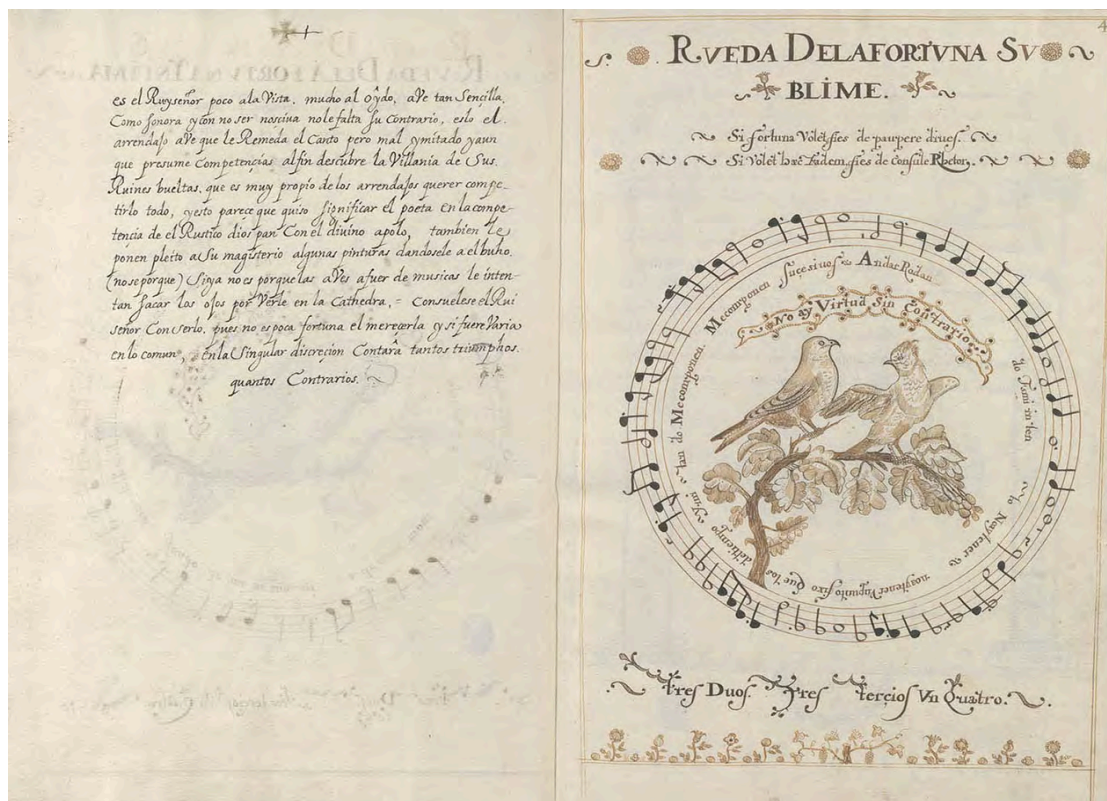 es el Ruyseñor poco ala Vista, mucho al oydo, aVe tan Sençilla,
Como sonora y con no ser nosciva nole falta Su Contrario, eslo el
arrendajo aVe que le Remeda el Canto pero mal ymitado yaun
que presume Competençias alfin descubre la Villania de Sus
Ruines bueltas, que es muy propio delos arrendajos querer compe-
tirlo todo, yesto pareçe que quiso significar el poeta enlacompe-
tençia de el Rustico dios pan Con el divino apolo, tambien le
ponen pleito a Su magisterio algunas pinturas dandosele a el buho,
(nose porque) Siya no es porque las aVes afuer de musicas le inten-
tan sacar los ojos por Verle en la Cathedra, = Consuelese el Rui
señor Con serlo, pues no es poca fortuna el mereçerla y si fuere Varia
en lo comun, en la Singular discreçion Contarâ tantos triumphos,
quantos Contrarios.
4
RVEDA DELAFORTVNA SV
BLIME.
Si fortuna Volet fies de paupere
Si Volet hæc Eadem, fies de Consule Rhetor,
No ay Virtud Sin Contrario
Andar Rodan
do Tami-inten
to Noay tener
noay tener Vn punto fixo Que los
deltiempo
tan do Mecomponen, Mecomponen suçesiuos
tres Duos, Tres terçios Vn Quatro.